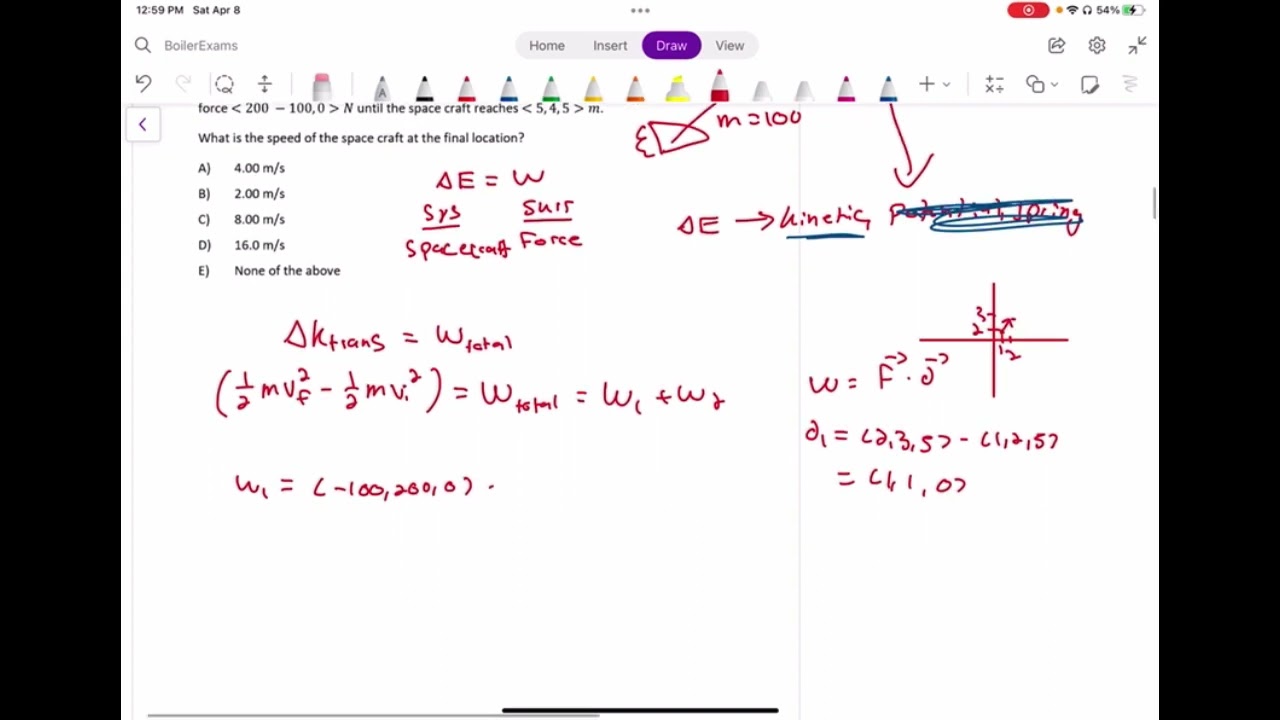 12:59 PM Sat Apr 8
54%
BoilerExams
Home Insert Draw View
A
force < 200 − 100, 0 > N until the space craft reaches < 5, 4, 5 > m.
What is the speed of the space craft at the final location?
A) 4.00 m/s
B) 2.00 m/s
C) 8.00 m/s
D) 16.0 m/s
E) None of the above
m = 100
ΔE = W
Sys Surr
Spacecraft Force
ΔE → Kinetic, Potential, Spring
3
2
1 2
ΔKtrans = Wtotal
(½ mvf² − ½ mvi²) = Wtotal = W1 + W2
W = F→ · d→
d1 = <2,3,5> − <1,2,5>
= <1,1,0>
W1 = <−100,200,0> ·